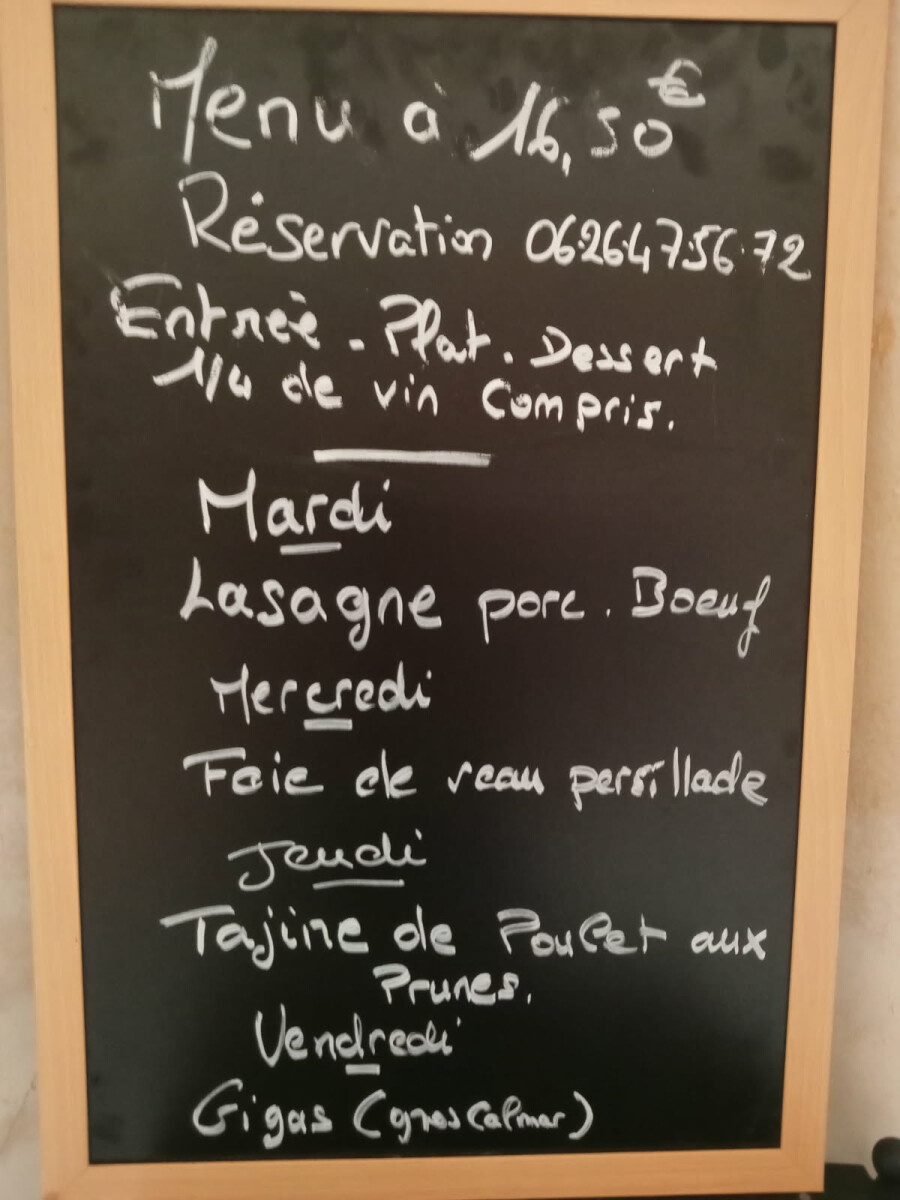 Menu à 16,50€
Réservation 06.26.47.56.72
Entrée . Plat . Dessert
1/4 de vin Compris.
Mardi
Lasagne porc . Boeuf
Mercredi
Foie de veau persillade
Jeudi
Tajine de Poulet aux
Prunes.
Vendredi
Gigas (gros Calmar)